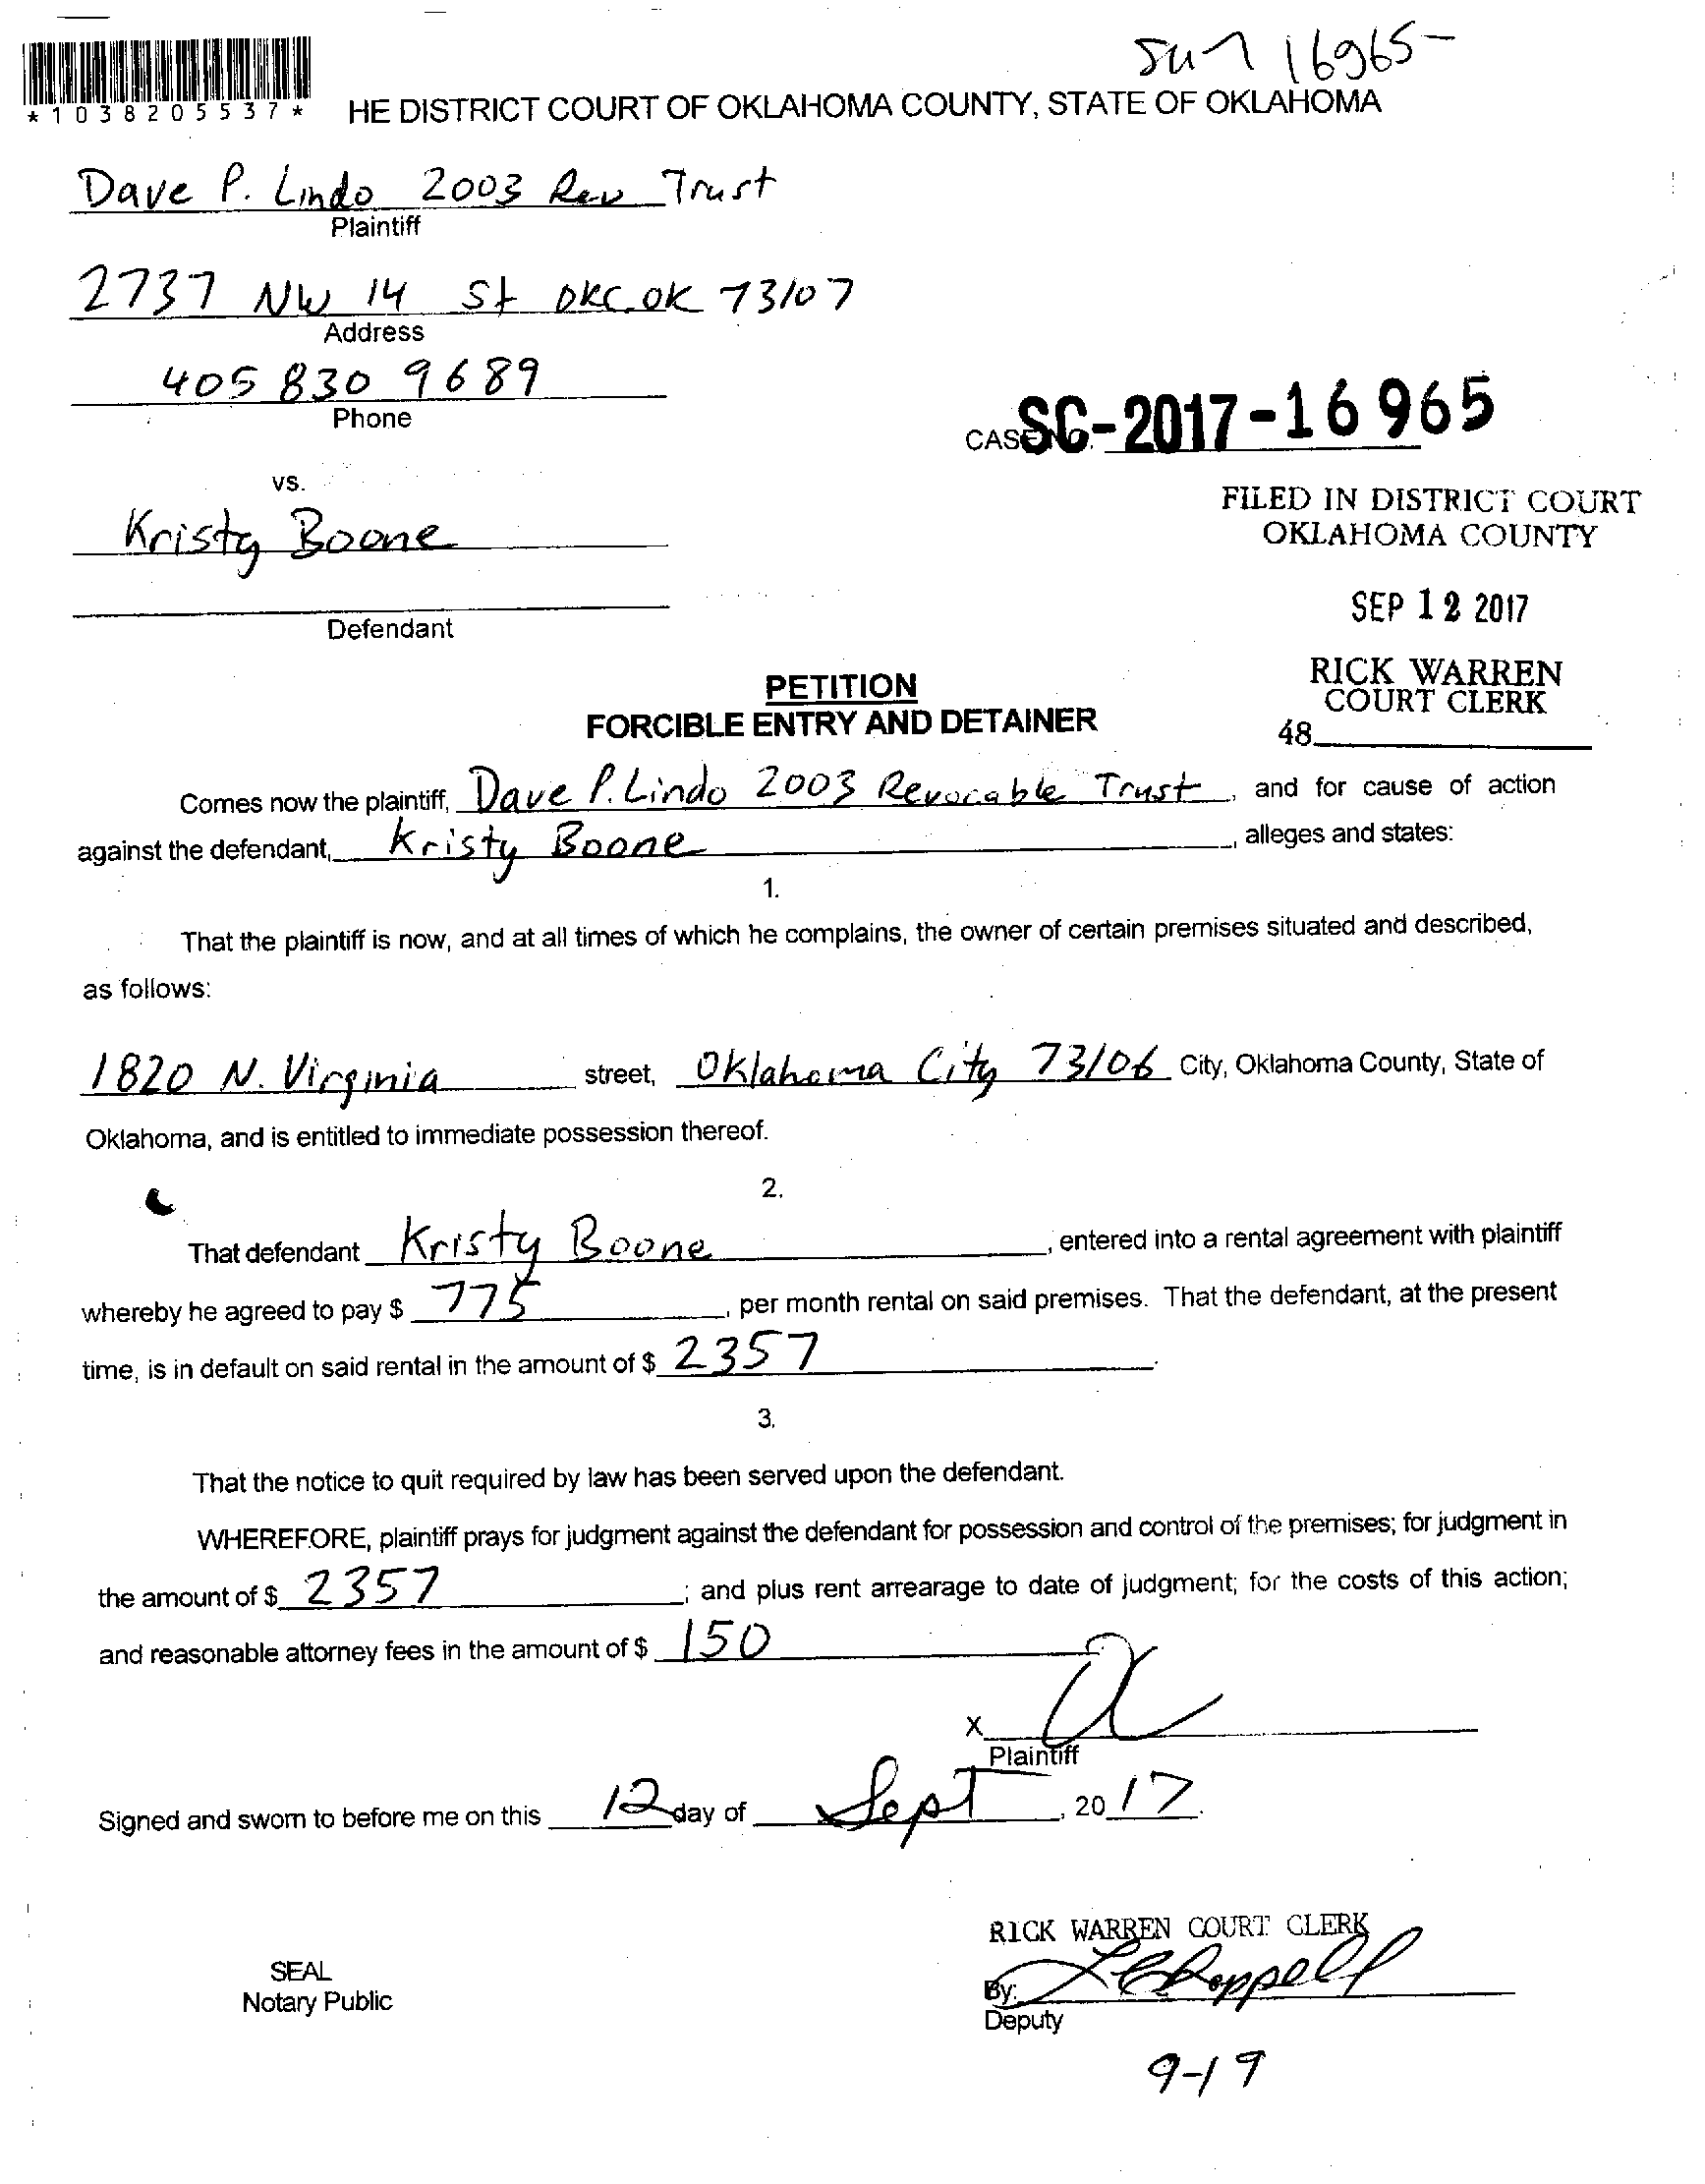 16965-
*1038205537*
HE DISTRICT COURT OF OKLAHOMA COUNTY, STATE OF OKLAHOMA
Dave P. Lindo 2003 Rev Trust
Plaintiff
2737 NW 14 St OKC OK 73107
Address
405 830 9689
Phone
CASE NO. SC-2017-16965
vs.
Kristy Boone
Defendant
FILED IN DISTRICT COURT
OKLAHOMA COUNTY
SEP 12 2017
RICK WARREN
COURT CLERK
48
PETITION
FORCIBLE ENTRY AND DETAINER
Comes now the plaintiff, Dave P. Lindo 2003 Revocable Trust, and for cause of action
against the defendant, Kristy Boone, alleges and states:
1.
That the plaintiff is now, and at all times of which he complains, the owner of certain premises situated and described,
as follows:
1820 N. Virginia street, Oklahoma City 73106 City, Oklahoma County, State of
Oklahoma, and is entitled to immediate possession thereof.
2.
That defendant Kristy Boone, entered into a rental agreement with plaintiff
whereby he agreed to pay $ 775, per month rental on said premises. That the defendant, at the present
time, is in default on said rental in the amount of $ 2357.
3.
That the notice to quit required by law has been served upon the defendant.
WHEREFORE, plaintiff prays for judgment against the defendant for possession and control of the premises; for judgment in
the amount of $ 2357; and plus rent arrearage to date of judgment; for the costs of this action;
and reasonable attorney fees in the amount of $ 150
X
Plaintiff
Signed and sworn to before me on this 12 day of Sept, 2017.
RICK WARREN COURT CLERK
SEAL
Notary Public
By:
Deputy
9-19